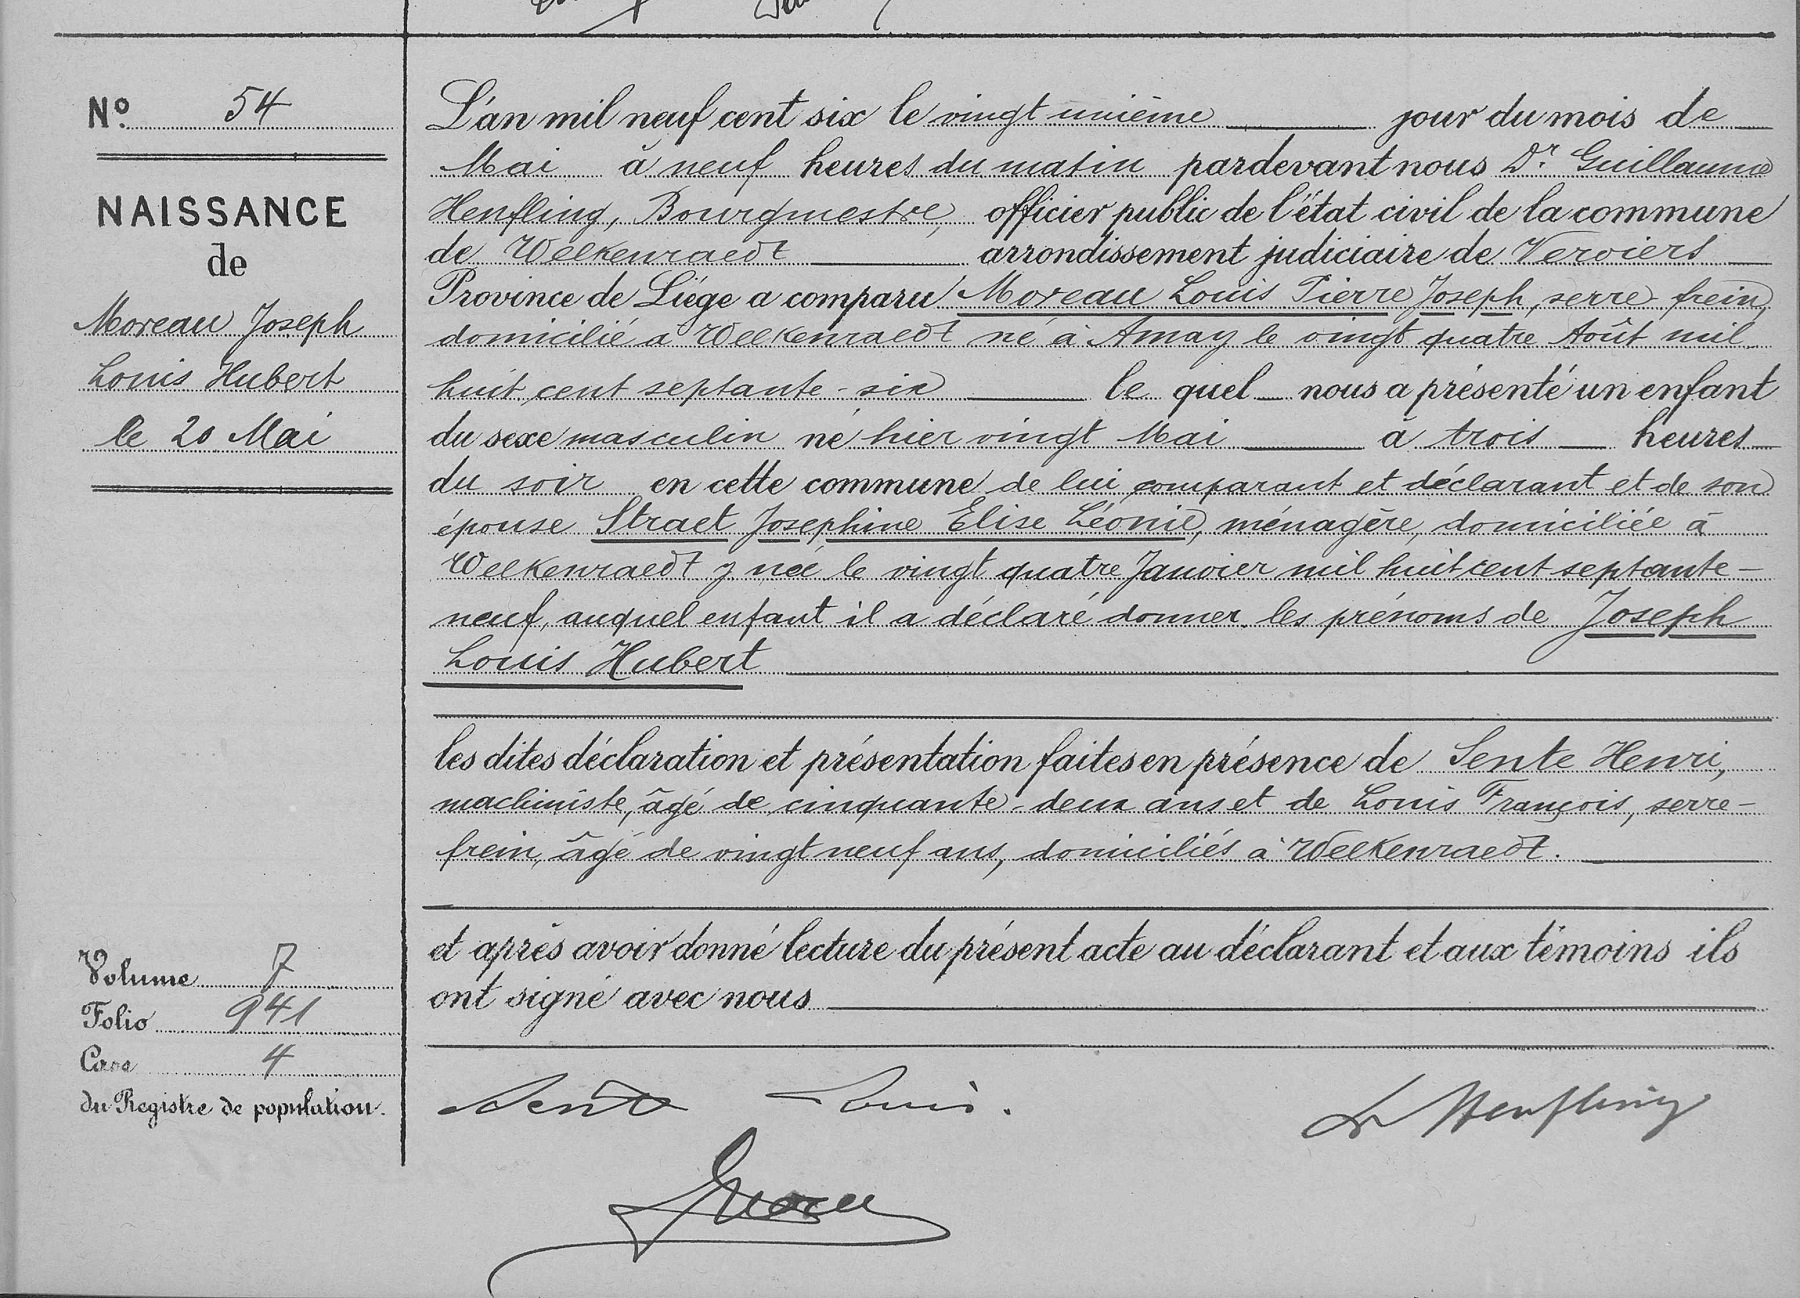 Nº 54
NAISSANCE
de
Moreau Joseph
Louis Hubert
le 20 Mai
L'an mil neuf cent six le vingt unième jour du mois de
Mai à neuf heures du matin pardevant nous Dr. Guillaume
Henfling, Bourgmestre, officier public de l'état civil de la commune
de Welkenraedt arrondissement judiciaire de Verviers
Province de Liége a comparu Moreau Louis Pierre Joseph, serre-frein,
domicilié a Welkenraedt né à Amay le vingt quatre Août mil
huit cent septante-six le quel nous a présenté un enfant
du sexe masculin né hier vingt Mai à trois heures
du soir en cette commune de lui comparant et déclarant et de son
épouse Straet Josephine Elise Léonie, ménagère, domiciliée à
Welkenraedt y née le vingt quatre Janvier mil huit cent septante-
neuf, auquel enfant il a déclaré donner les prénoms de Joseph
Louis Hubert
les dites déclaration et présentation faites en présence de Sente Henri,
machiniste, âgé de cinquante-deux ans et de Louis François, serre-
frein, âgé de vingt neuf ans, domiciliés à Welkenraedt.
et après avoir donné lecture du présent acte au déclarant et aux témoins ils
ont signé avec nous
Volume 7
Folio 941
Case 4
du Registre de population.
Sente Louis. Dr Henfling